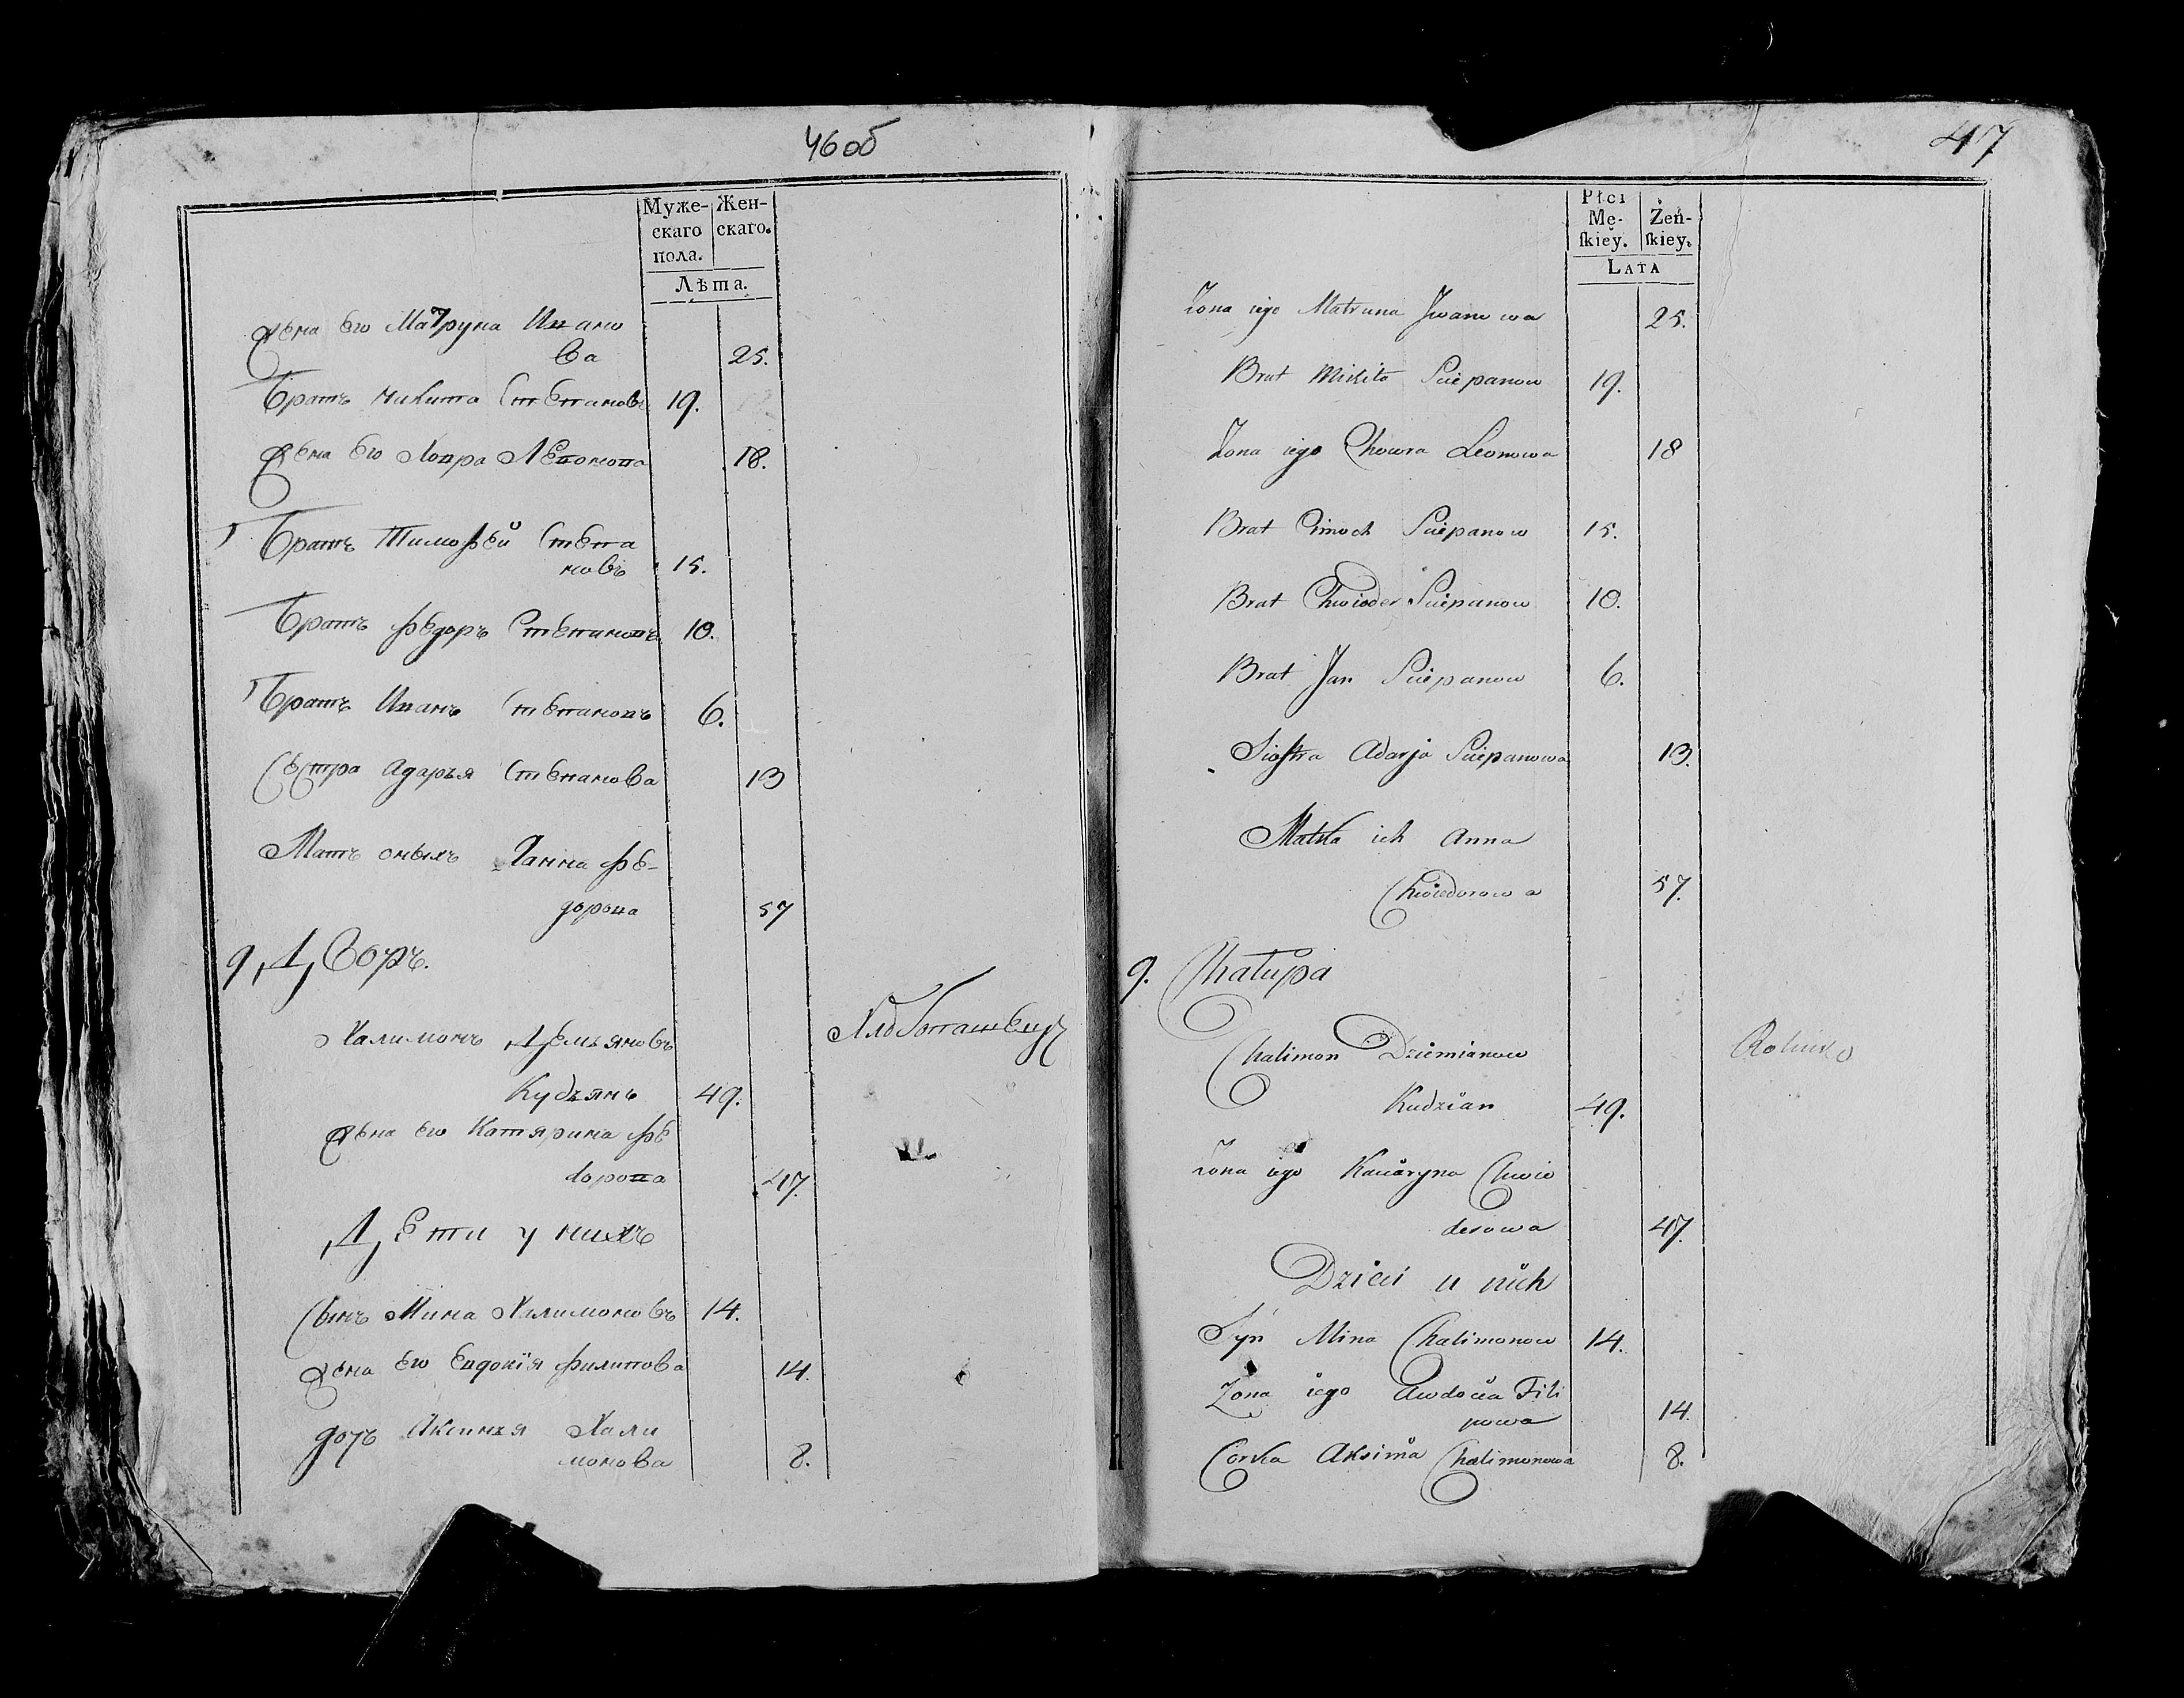 46об
Муже- Жен-
скаго скаго.
пола.
Лѣта.
Жена Его Матруна Ивано
ва 25.
Братъ Никита Степановъ 19.
Жена Его Ховра Левонова 18.
Братъ Тимофей Степа
новъ 15.
Братъ Федоръ Степановъ 10.
Братъ Иванъ Степановъ 6.
Сестра Адарья Степанова 13
Мать оныхъ Ганна Фе-
дорова 57
9 Дворъ.
Халимонъ Демьяновъ Хлебопашецъ
Кудзянъ 49.
Жена Его Катярина Фе
дорова 47.
Дети у нихъ
Сынъ Мина Халимоновъ 14.
Жена Его Евдокія Филипова 14.
дочь Аксинья Хали
монова 8.
47
Płci
Mę- Żeń-
ſkiey. ſkiey.
LATA
Żona iego Matruna Jwanowa 25.
Brat Mikita Sciepanow 19.
Żona iego Chowra Leonowa 18
Brat Cimoch Sciepanow 15.
Brat Chwiodor Sciepanow 10.
Brat Jan Sciepanow 6.
Siostra Adarja Sciepanowa 13.
Matka ich Anna
Chwiedorowa 57.
9. Chałupa
Chalimon Dziemianow
Kudzian 49.
Żona iego Kaciaryna Chwie
dorowa 47.
Dzieci u nich
Syn Mina Chalimonow 14.
Żona iego Awdocia Fili
powa 14.
Corka Aksinia Chalimonowa 8.